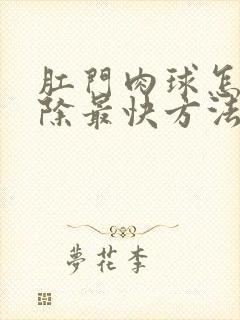 肛門肉球怎
除最快方法
夢花李